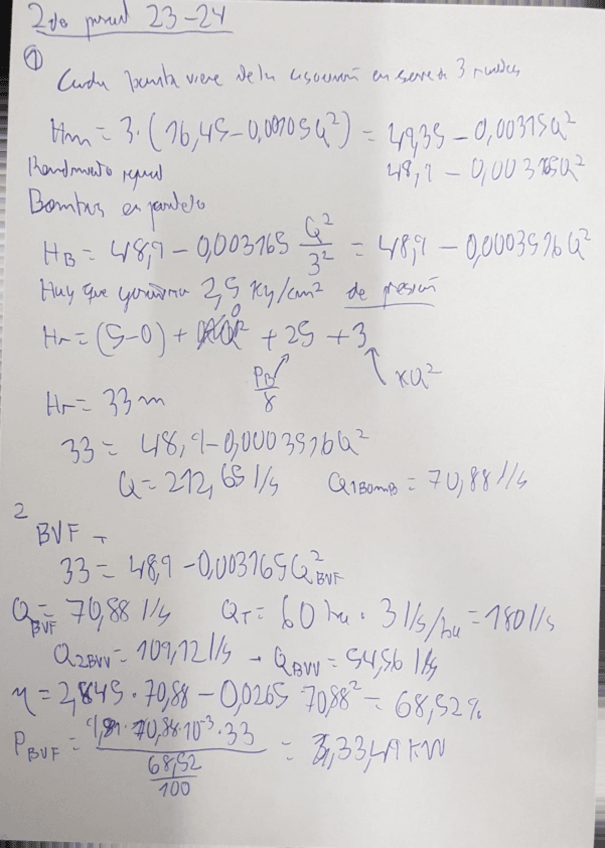 2do parcial 23-24
①
Cada bomba viene de la asociación en serie de 3 rodetes
Hm = 3·(16,45-0,00105Q²) = 49,35 - 0,00315Q²
48,9 - 0,003165Q²
Rendimiento igual
Bombas en paralelo
H_B = 48,9 - 0,003165 Q²/3² = 48,9 - 0,0003516Q²
Hay que garantizar 2,5 Kg/cm² de presión
Hr = (5-0) + 0 + 25 + 3
P_B/γ KQ²
Hr = 33 m
33 = 48,9 - 0,0003516Q²
Q = 212,65 l/s Q1Bomb = 70,88 l/s
2
BVF
33 = 48,9 - 0,003165Q²_BVF
Q_BVF = 70,88 l/s Q_T = 60 ha · 3 l/s/ha = 180 l/s
Q_2BVV = 109,12 l/s → Q_BVV = 54,56 l/s
η = 2,845·70,88 - 0,0265 70,88² = 68,52%
P_BVF = 9,81·70,88·10⁻³·33 / (68,52/100) = 33,49 KW